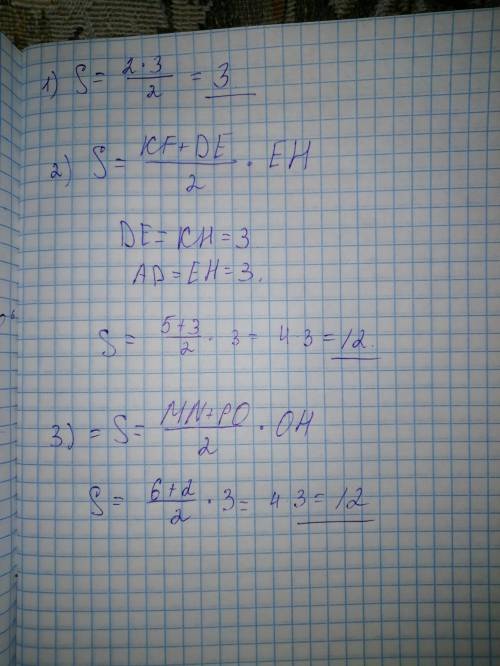 1) S = 2·3/2 = 3
2) S = KF+DE/2 · EH
DE = KH = 3
AD = EH = 3.
S = 5+3/2 · 3 = 4·3 = 12.
3) = S = MN+PO/2 · OH
S = 6+2/2 · 3 = 4·3 = 12